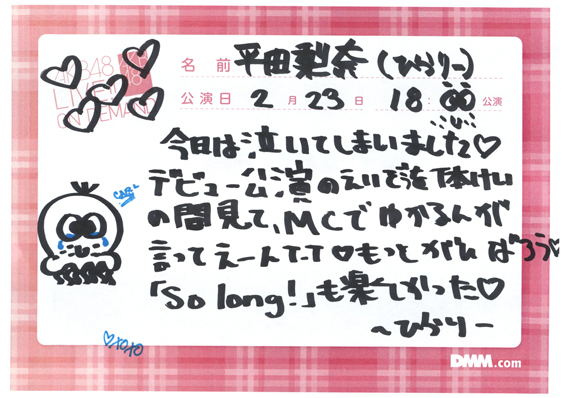 AKB48
LIVE!!
ON DEMAND
名 前 平田梨奈(ひらりー)
公演日 2月23日 18:00公演
今日は泣いてしまいました♡
デビュー公演のえいぞう
の間見て、MCでゆかるんが
言ってえーんT-T♡もっとがんばろう♡
「So long!」も楽しかった♡
~ひらりー
♡XOXO
DMM.com